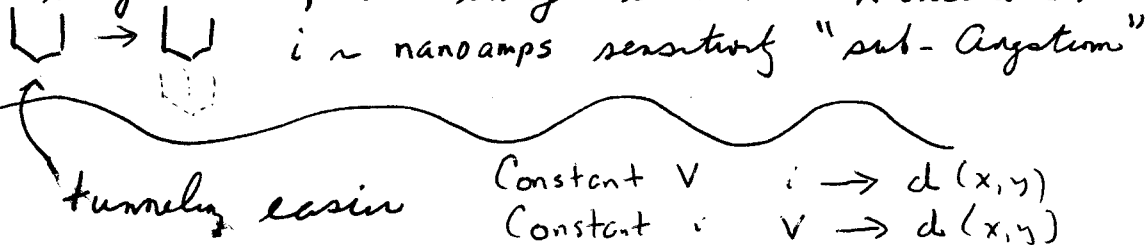 i ~ nanoamps sensitivity "sub-Angstrom"
tunneling easier
Constant V i → d(x,y)
Constant i V → d(x,y)